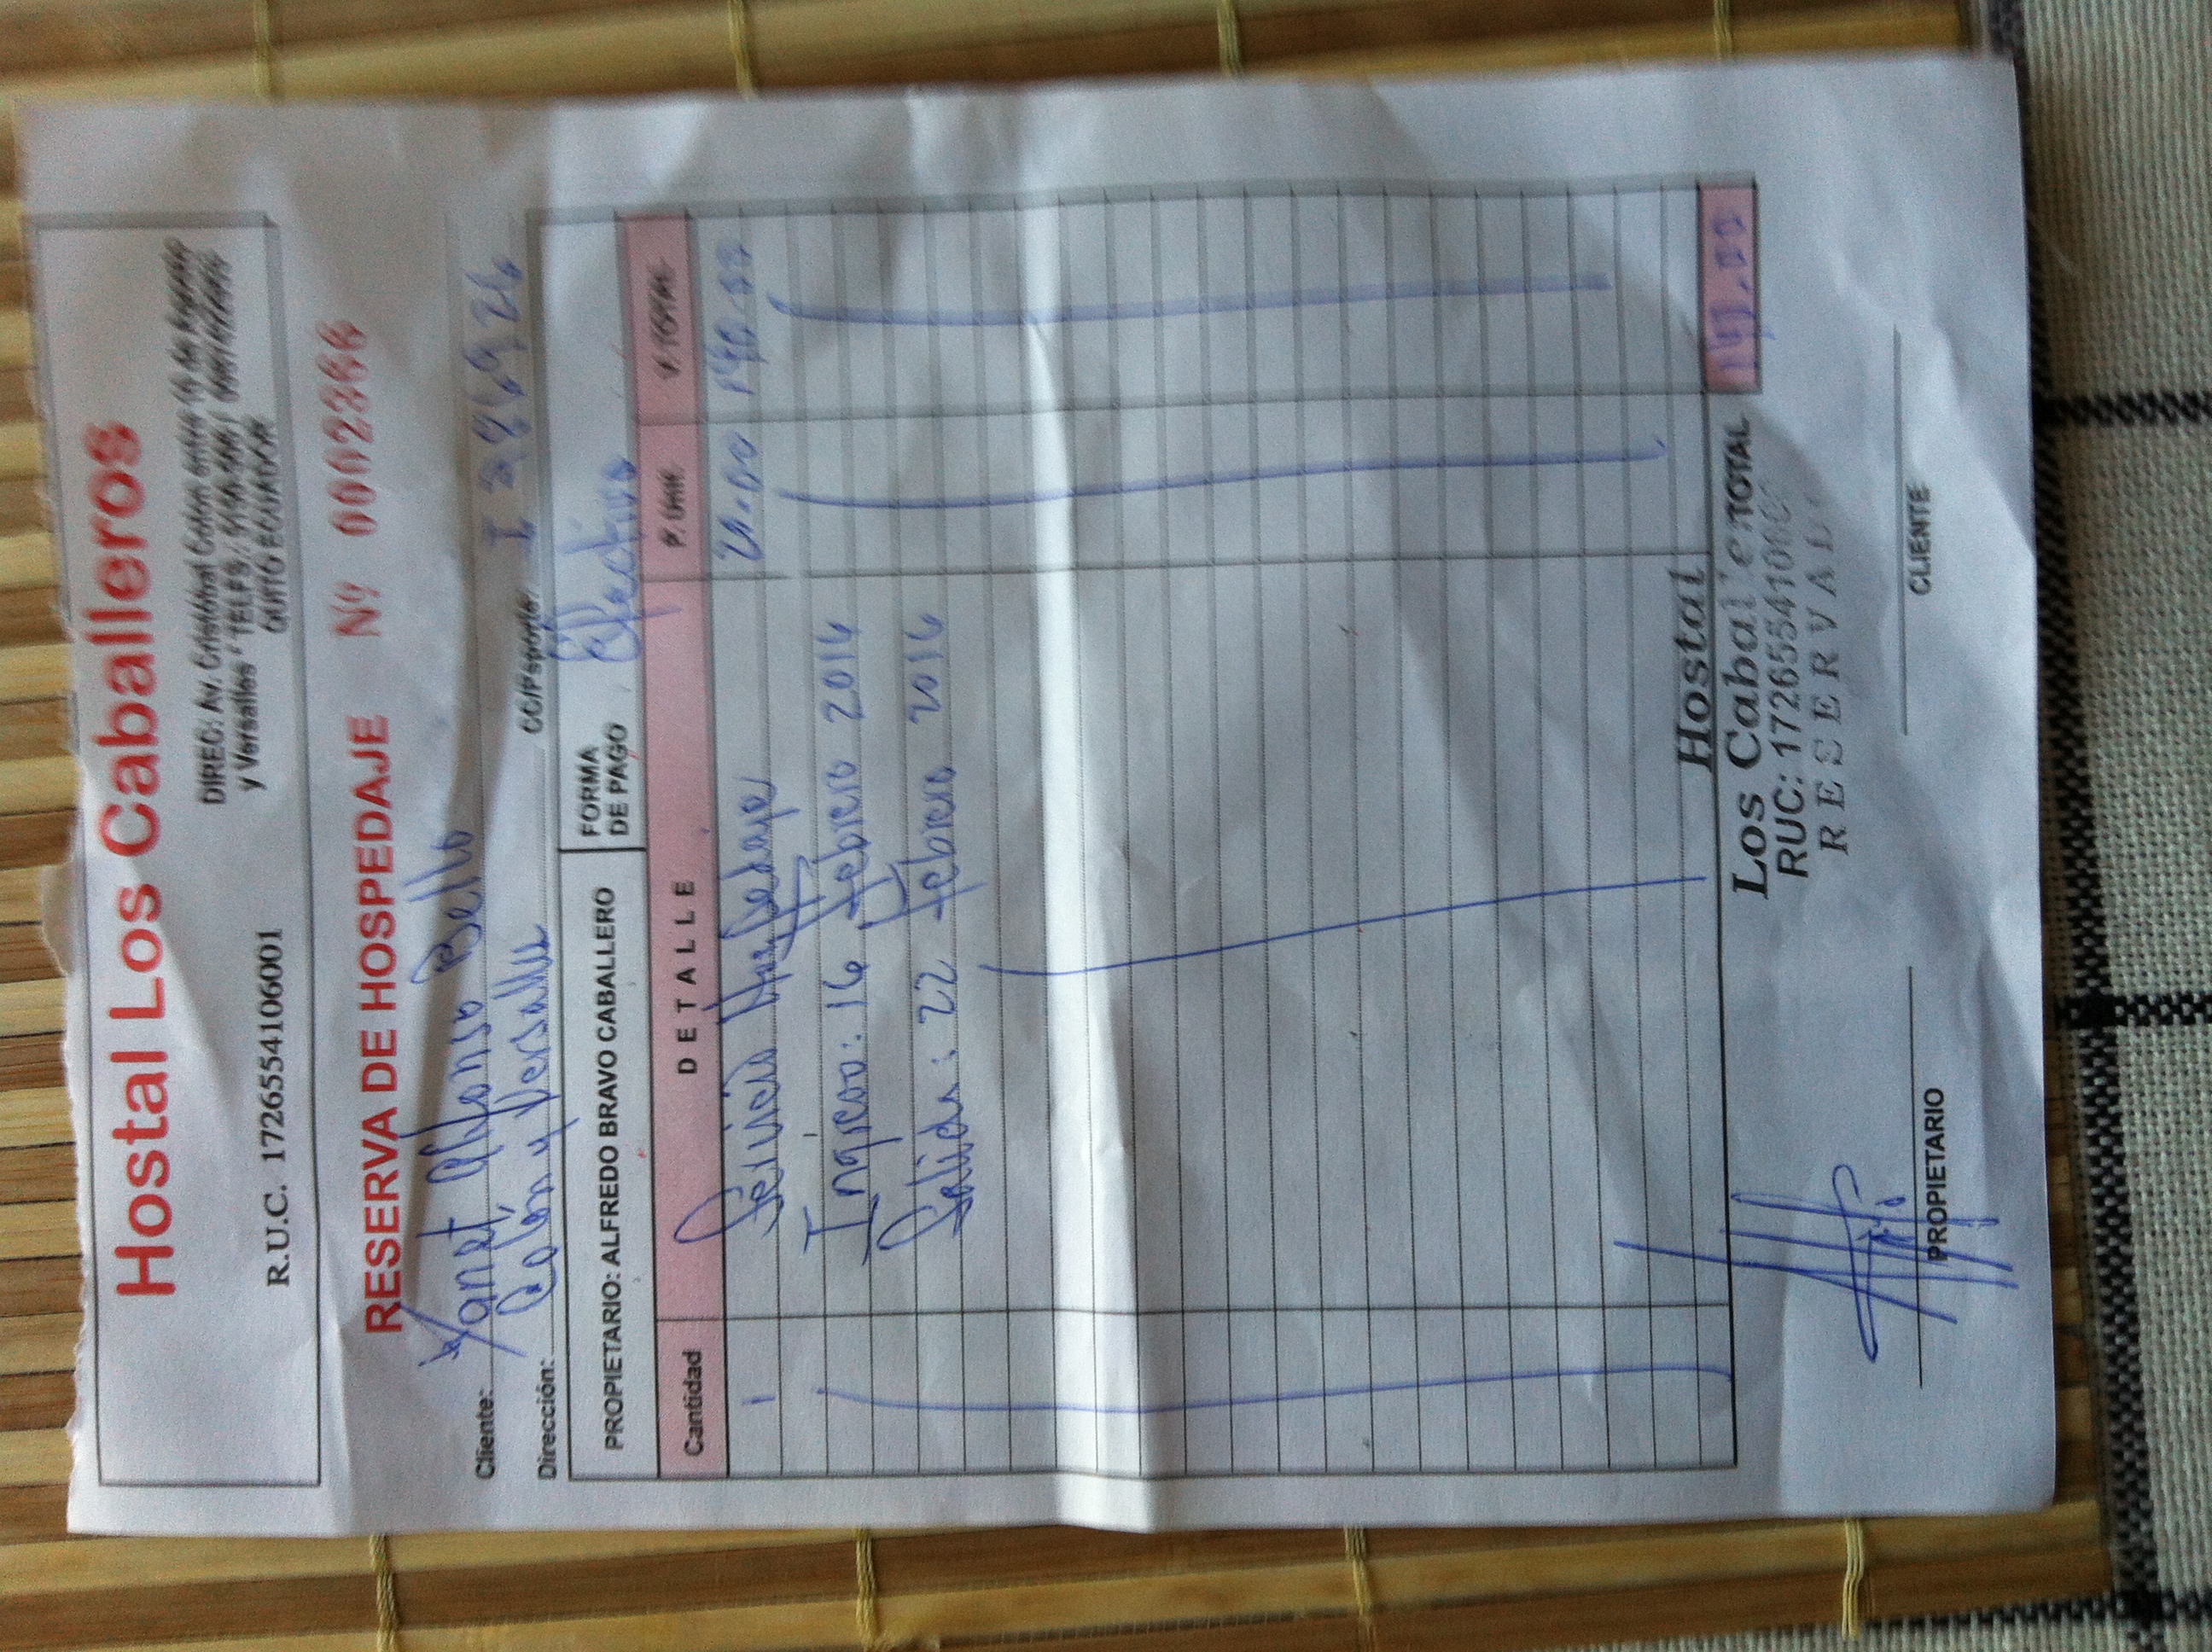 Hostal Los Caballeros
DIREC: Av. Cristóbal Colón entre 10 de Agosto
y Versalles * TELFS.:
QUITO ECUADOR
R.U.C. 1726554106001
RESERVA DE HOSPEDAJE Nº 0002366
Cliente: Yanet Alfonso Bello
Dirección: Colón y Versalles CC/Psporte: I
PROPIETARIO: ALFREDO BRAVO CABALLERO
FORMA
DE PAGO Efectivo
Cantidad DETALLE P. Unit. V. TOTAL
1 Servicio Hospedaje 20.00 140.00
Ingreso: 16 febrero 2016
Salida: 22 febrero 2016
Hostal
Los Caballe TOTAL 140.00
RUC: 17265541060
RESERVADO
PROPIETARIO
CLIENTE